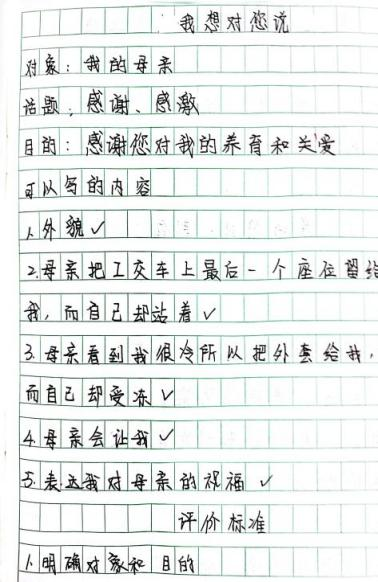 我想对您说
对象：我的母亲
话题：感谢、感激
目的：感谢您对我的养育和关爱
可以写的内容
1.外貌✓
2.母亲把工交车上最后一个座位留给
我，而自己却站着✓
3.母亲看到我很冷所以把外套给我，
而自己却受冻✓
4.母亲会让我✓
5.表达我对母亲的祝福✓
评价标准
1.明确对象和目的